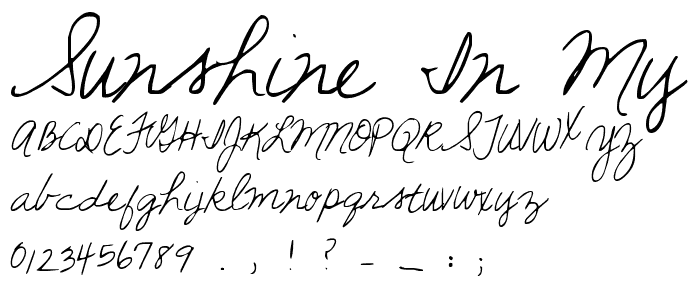 Sunshine In My
ABCDEFGHIJKLMNOPQRSTUVWXYZ
abcdefghijklmnopqrstuvwxyz
0123456789 . , ! ? - _ : ;